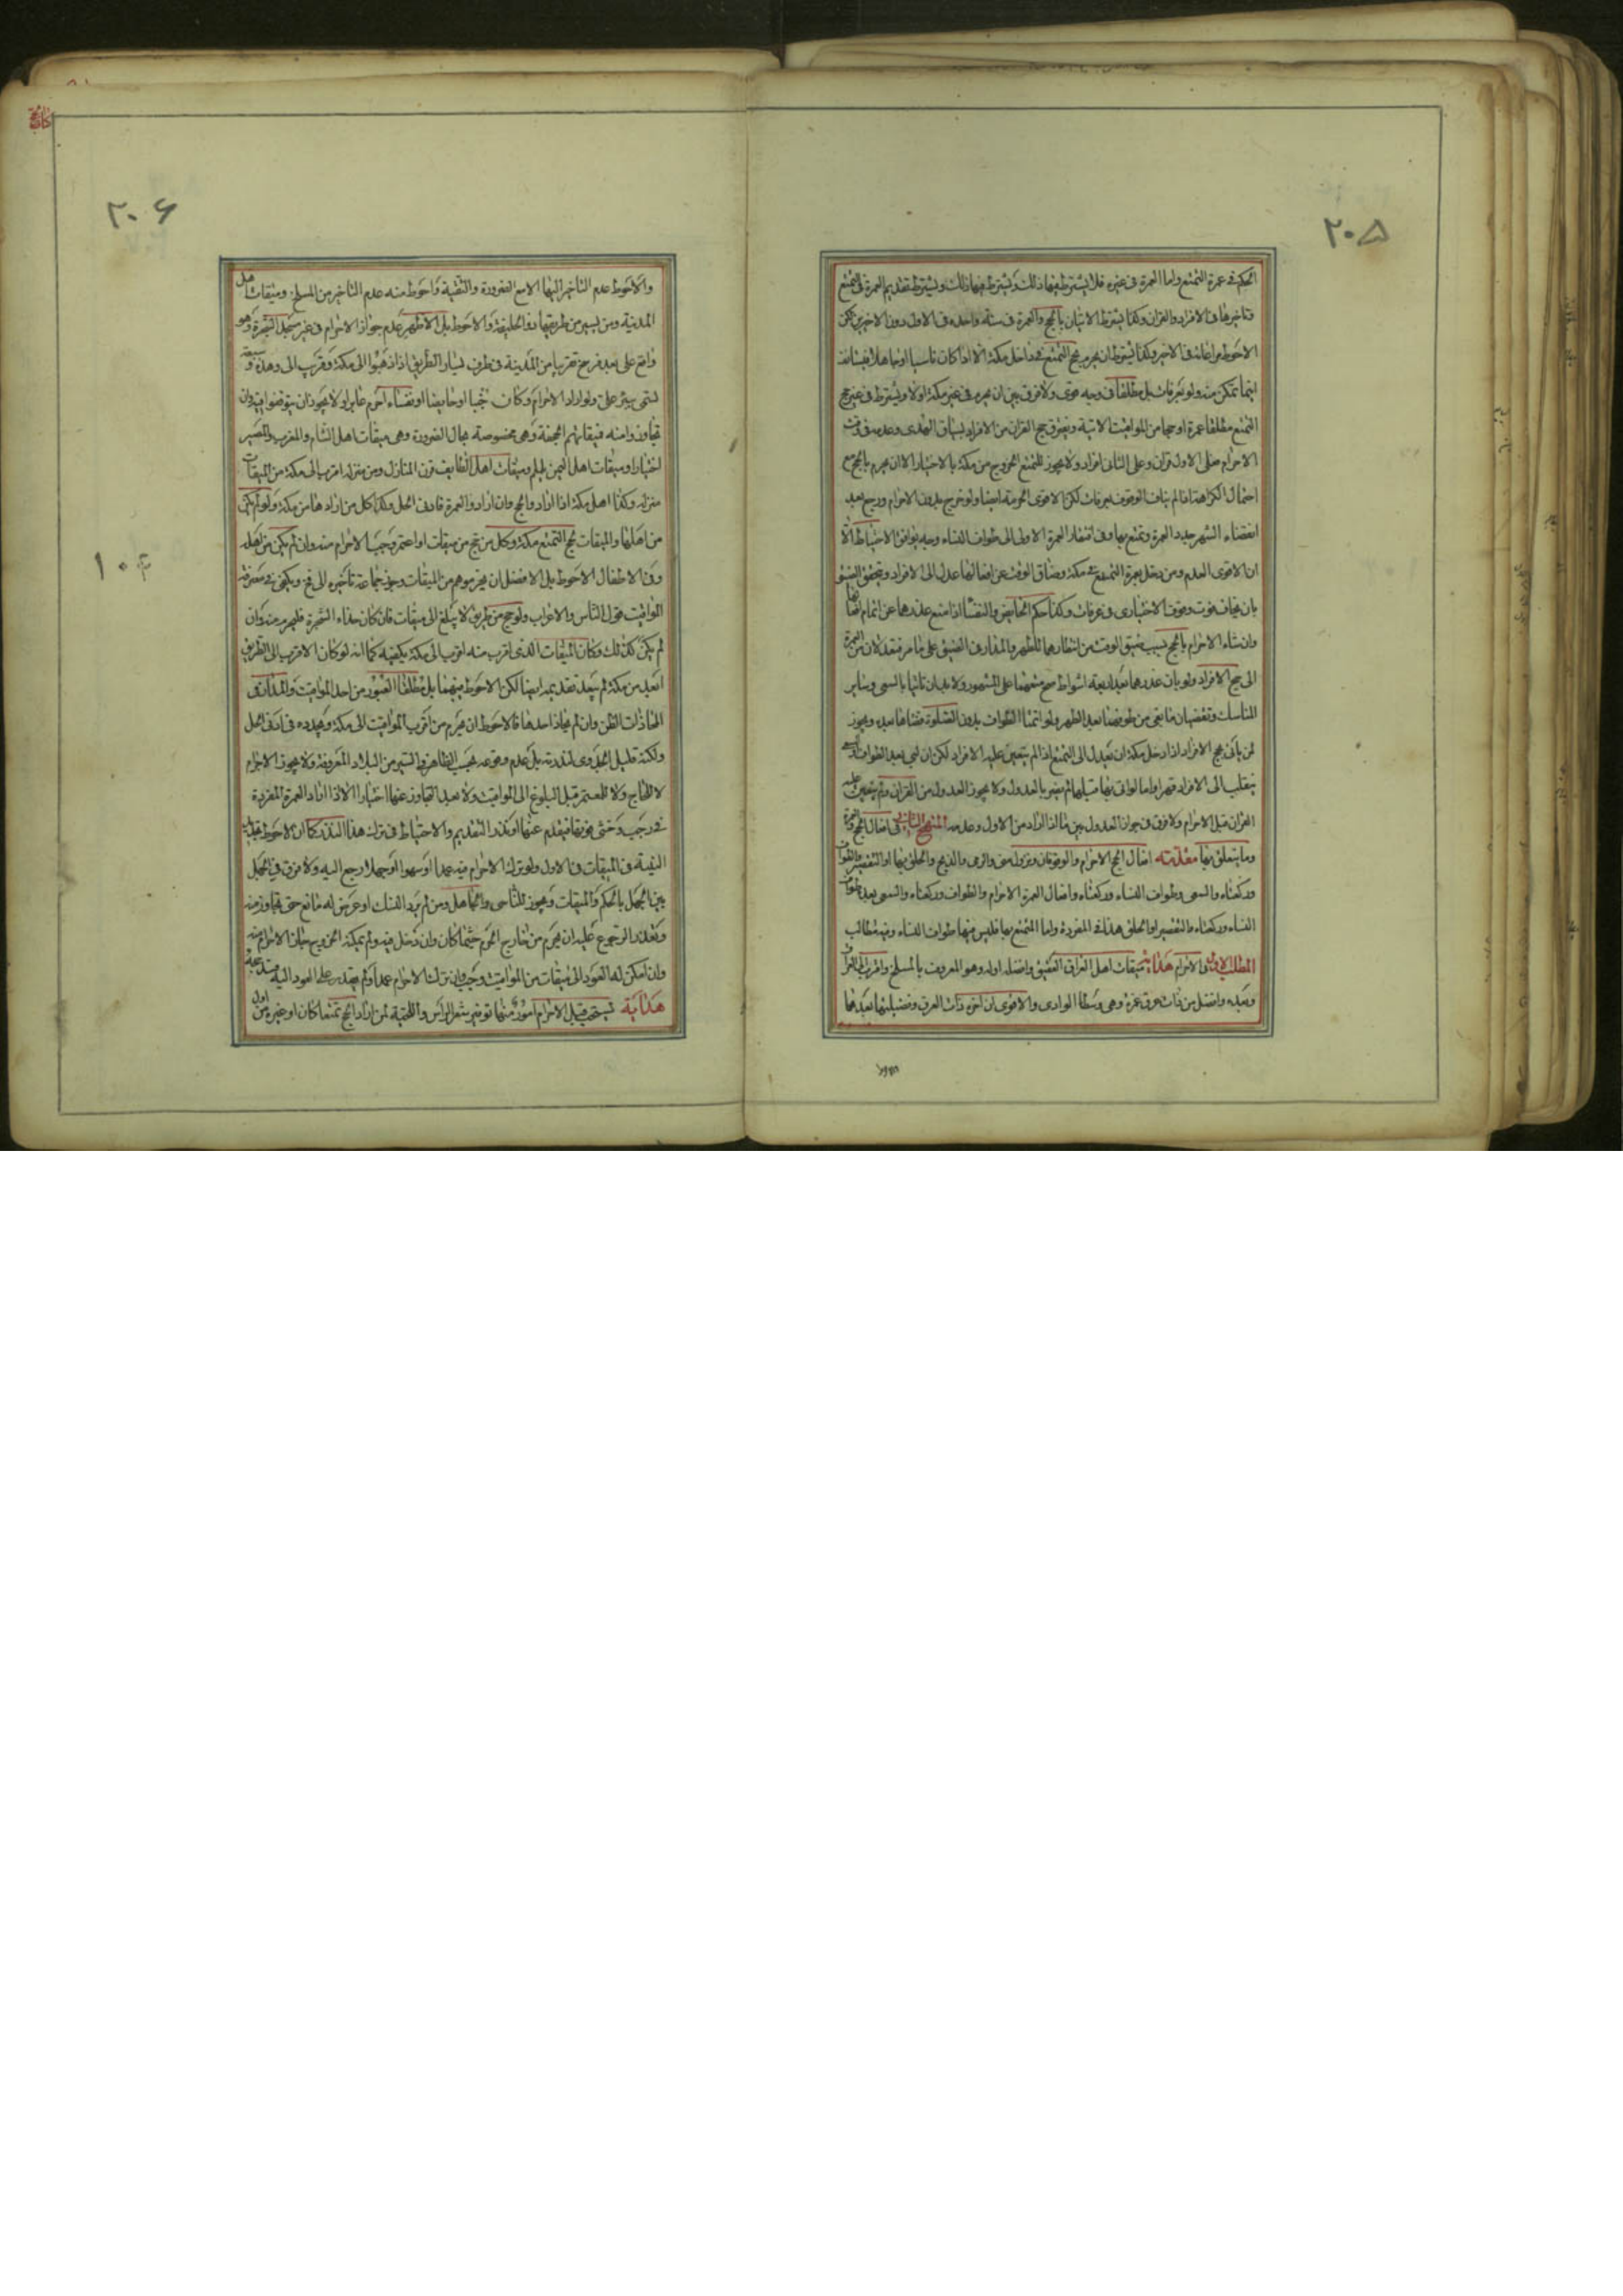 ٢٠۵
الحكم في عمرة التمتع واما العمرة في غيره فلا يشترط فيها ذلك ويشترط تقديم العمرة في التمتع
وتاخيرها في الافراد والقران وكذا يشترط الاتيان بالحج والعمرة في سنة واحدة في الاول دون الاخيرين لكن
الاحوط مراعاته في الاخير وكذا يشترط ان يحرم بحج التمتع في داخل مكة الا اذا كان ناسيا او جاهلا فيستانف
اينما تمكن منه ولو بعرفات بل مطلقا في وجه قوى ولا فرق بين ان يحرم في غير مكة اولا ويشترط في غير حج
التمتع مطلقا عمرة او حجا من المواقيت الاتية ويفترق حج القران من الافراد بسياق الهدى وعدمه في وقت
الاحرام فعلى الاول قران وعلى الثانى افراد ولا يجوز للمتمتع الخروج من مكة بالاختيار الا ان يحرم بالحج مع
احتمال الكراهة اذا لم يناف الوقوف بعرفات لكن الاقوى الحرمة ايضا ولو خرج بدون الاحرام ورجع بعد
انقضاء الشهر جدد العمرة وتمتع بها وفى افتقار العمرة الاولى الى طواف النساء وجه يوافق الاحتياط الا
ان الاقوى العدم ومن دخل بعمرة التمتع في مكة وضاق الوقت عن افعالها عدل الى الافراد ويتحقق الضيق
بان يخاف فوت وقوف الاختيارى في عرفات وكذا حكم الحايض والنفساء اذا منع عذرها عن اتمام افعالها
وان شاء الاحرام بالحج بسبب ضيق الوقت من انتظارهما للطهر والمدار في الضيق على ما مر فتعدلان من العمرة
الى حج الافراد ولو بان عذرهما بعد اربعة اشواط صح متعتهما على المشهور ولا بد بان تاتيا بالسعى وساير
المناسك وتقضيان ما بقى من طوفهما بعد الطهر ولو اتمتا الطواف بدون الصلوة قضتاها بعده ويجوز
لمن ياتى بحج الافراد اذا دخل مكة ان يعدل الى التمتع اذا لم يتعين عليه الافراد لكن ان لبى بعد الطواف
ينقلب الى الافراد قهرا واما لو اتى بها قبلهما لم يضر بالعدول ولا يجوز العدول من القران ولم يتعين عليه
القران قبل الاحرام ولا فرق في جواز العدول بين ما اذا اراد من الاول وعدمه المنهج الثانى في افعال الحج والعمرة
وما يتعلق بها مقدمة افعال الحج الاحرام والوقوفان ونزول منى والرمى والذبح والحلق بها او التقصير والطواف
وركعتاه والسعى وطواف النساء وركعتاه وافعال العمرة الاحرام والطواف وركعتاه والسعى بعده وطواف
النساء وركعتاه والتقصير او الحلق هذا في المفردة واما المتمتع بها فليس فيها طواف النساء وفيه مطالب
المطلب الاول في الاحرام هداية ميقات اهل العراق العقيق وافضله اوله وهو المعروف بالمسلخ
وبعده وافضل من ذات عرق غمرة وهى وسط الوادى والاقوى ان اخره ذات العرق وفضيلتهما بعدها
٢٠۶
والاحوط عدم التاخير اليها الا مع الضرورة والتقية واحوط منه عدم التاخير من المسلخ وميقات اهل
المدينة ومن يسير من طريقها ذو الحليفة والاحوط بل الاظهر عدم جواز الاحرام في غير مسجد الشجرة وهو
واقع على بعد فرسخ تقريبا من المدينة في طرف يسار الطريق اذا ذهبوا الى مكة وقرب الى وهدة
تسمى ببئر على ولو اراد الاحرام وكان جنبا او حايضا او نفساء احرم عابرا ولا يجوز ان يتوضوا فيه وان
تجاوزوا منه فميقاتهم الجحفة وهى مخصوصة بحال الضرورة وهى ميقات اهل الشام والمغرب والمصر
اختيارا وميقات اهل اليمن يلملم وميقات اهل الطايف قرن المنازل ومن منزله اقرب الى مكة من الميقات
منزله وكذا اهل مكة اذا ارادوا الحج وان ارادوا العمرة فادنى الحل وكذا كل من ارادها من مكة ولو لم يكن
من اهلها والميقات لحج التمتع مكة وكل من حج من ميقات او اعتمر وجب الاحرام منه وان لم يكن من اهله
وفى الاطفال الاحوط بل الافضل ان يجردوهم من الميقات وجوز جماعة تاخيره الى فخ ويكفى في معرفة
المواقيت قول الناس والاعراب ولو حج من طريق لا يبلغ الى ميقات فان كان حذاء الشجرة فليحرم منه وان
لم يكن كذلك وكان الميقات الذى اقرب منه اقرب الى مكة يكفيه كما انه لو كان الاقرب الى الطريق
ابعد من مكة لم يبعد تقديمه ايضا لكن الاحوط فيهما بل مطلقا العبور من احد المواقيت والمدار في
المحاذات الظن وان لم يحاذ احدها فالاحوط ان يحرم من اقرب المواقيت الى مكة ويجدده في ادنى الحل
ولكنه قليل الجدوى لندرته بل عدم وقوعه بحسب الظاهر في السير من البلاد المعروفة ولا يجوز الاحرام
لا للحاج ولا للمعتمر قبل البلوغ الى المواقيت ولا بعد التجاوز عنها اختيارا الا اذا اراد العمرة المفردة
في رجب وخشى فوتها فيقدم عنها او نذر التقديم والاحتياط في ترك هذا النذر كما ان الاحوط
النية في الميقات في الاول ولو ترك الاحرام فيه عمدا او سهوا او جهلا رجع اليه ولا فرق في الجهل
بين الجهل بالحكم والميقات ويجوز للناسى والجاهل ومن لم يرد النسك او عرض له مانع حتى تجاوز منه
وتعذر الرجوع عليه ان يحرم من خارج الحرم حيثما كان وان دخل فيه ولم يمكنه الخروج جاز الاحرام منه
وان امكن له العود الى ميقات من المواقيت وجب وان ترك الاحرام عمدا ولم يقدر على العود اليه
هداية يستحب قبل الاحرام امور منها توفير شعر الراس واللحية لمن اراد الحج تمتعا كان او غيره من اول